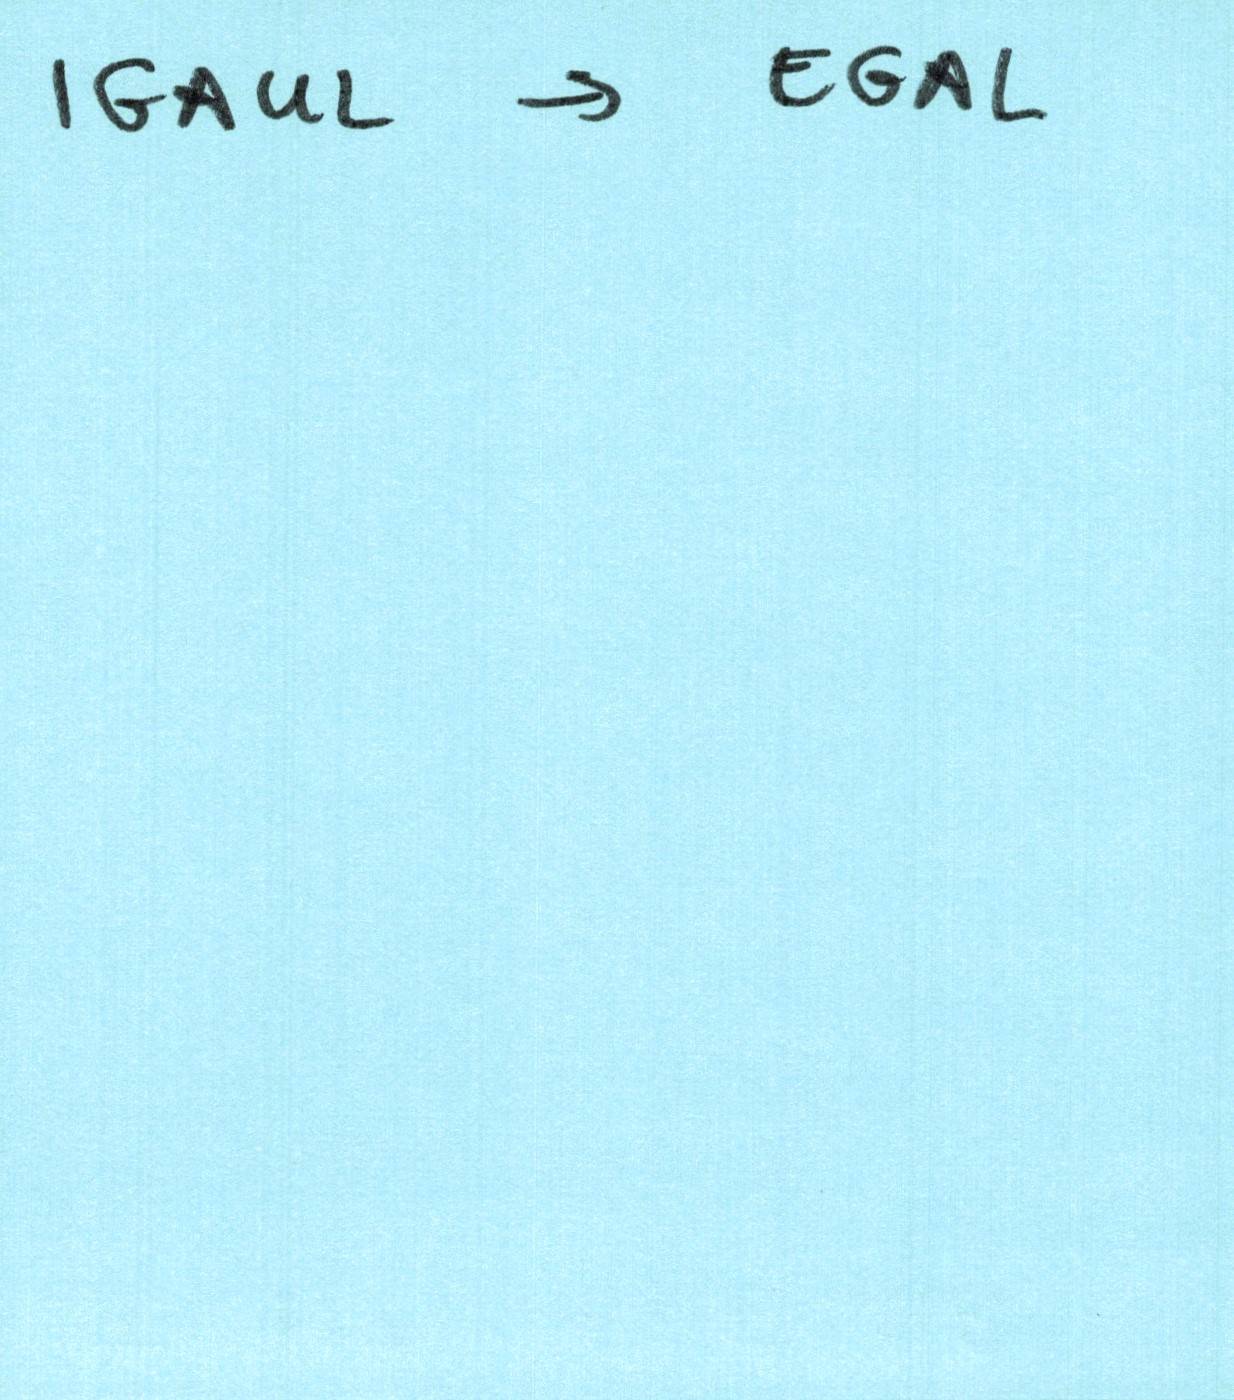 IGAUL → EGAL